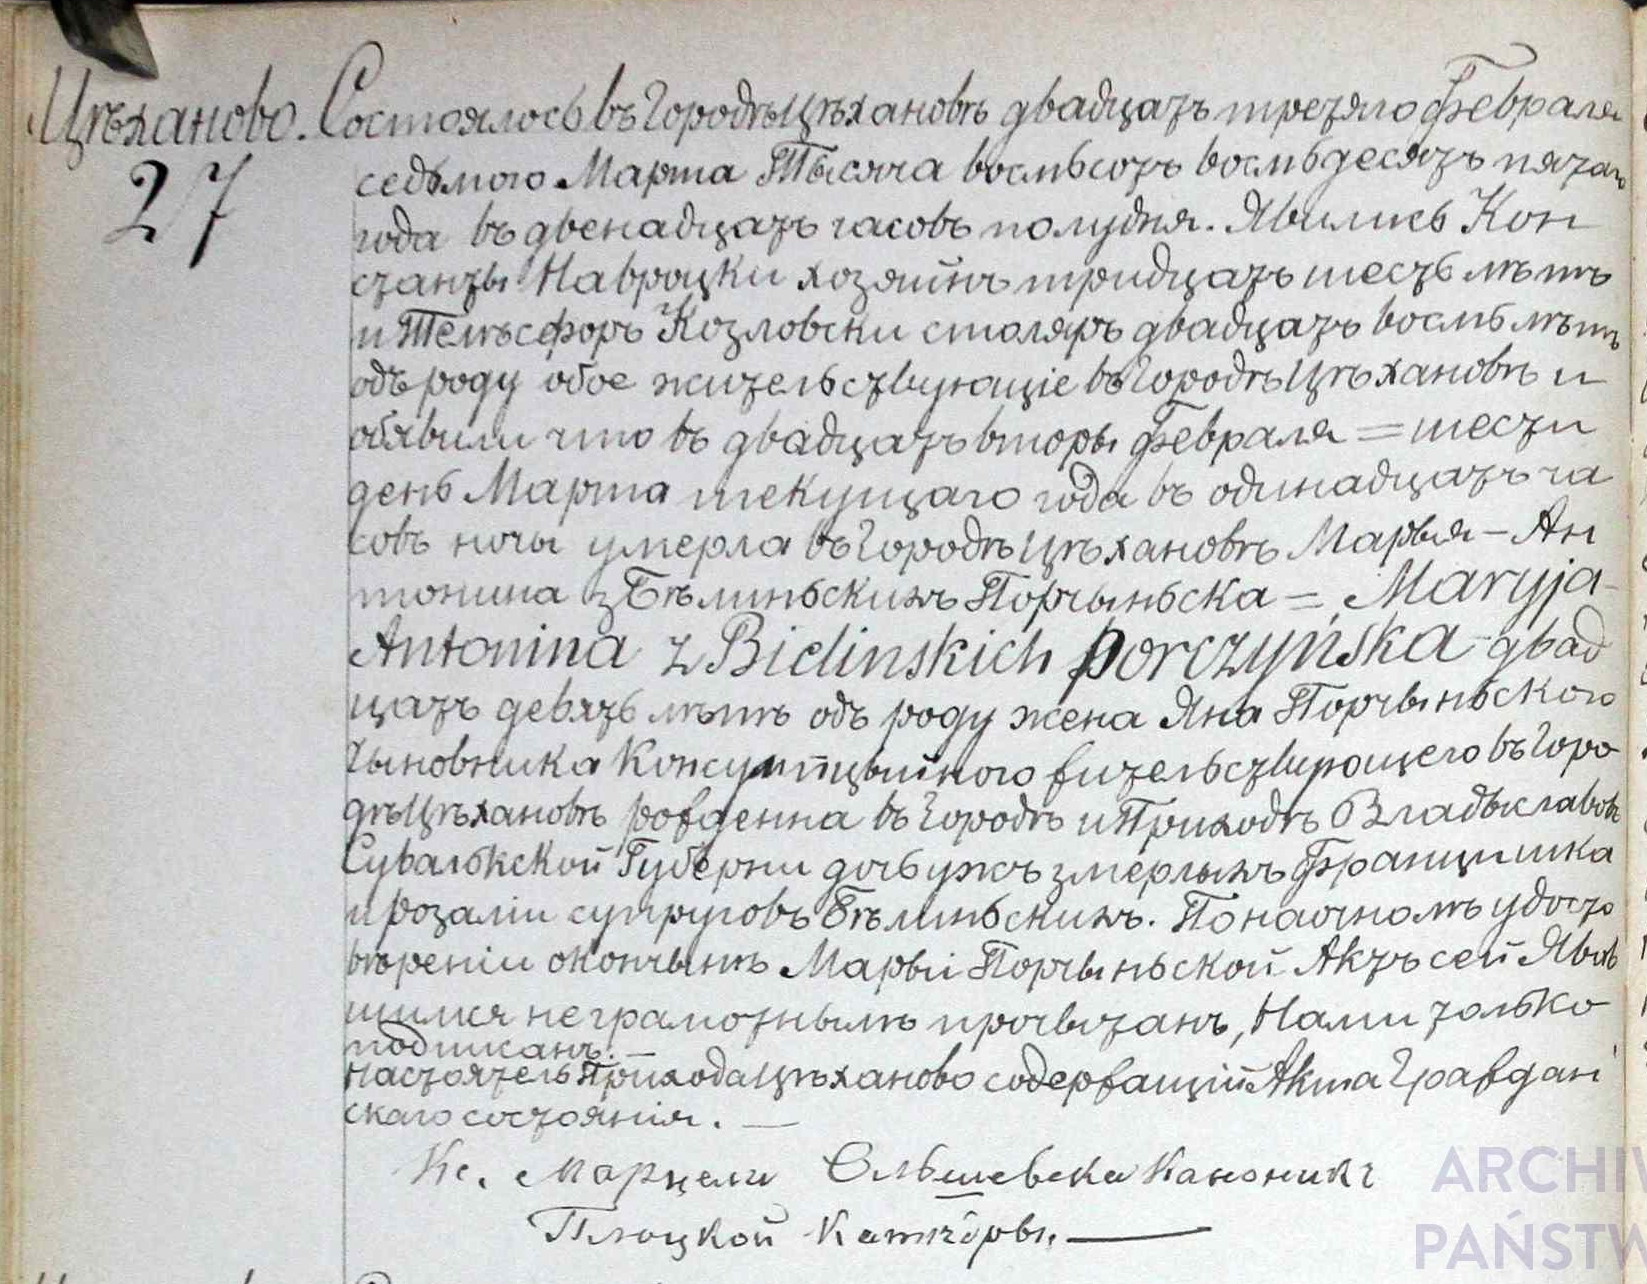 Цѣханово. Состоялось въ Городѣ Цѣхановѣ двадцать третяго Февраля
27 седьмого Марта Тысяча восмьсотъ восмьдесятъ пятаго
года въ двенадцать часовъ полудня. Явились Кон
станты Навроцки хозяинъ тридцать шесть лѣтъ
и Телѣсфоръ Козловски столяръ двадцать восмь лѣтъ
одъ роду обое жительствующіе въ Городѣ Цѣхановѣ и
обявили что въ двадцать вторы Февраля = шести
день Марта текущаго года въ одинадцать ча
совъ ночы умерла въ Городѣ Цѣхановѣ Марыя - Ан
тонина з Бѣлиньскихъ Порчыньска = Maryja
Antonina z Bielinskich Porczyńska двад
цать девять лѣтъ одъ роду жена Яна Порчыньского
Чыновника жительствующего въ Горо
дѣ Цѣхановѣ рожденна въ Городѣ и Приходѣ Владыславовѣ
Сувалькской Губерни дочь ужъ змерлыхъ Францишка
и розаліи супруговъ Бѣлиньскихъ. По наочномъ удосто
вѣреніи окончынѣ Марыи Порчыньской Актъ сей Явив
шимся неграмотнымъ прочытанъ, Нами только
подписанъ. —
Настоятель Прихода Цѣханово содержащій Акта Граждан
скаго состоянія. —
Кс. Марцели Ольшевски Каноникъ
Плоцкой Катедры. —
ARCHIW
PAŃSTW